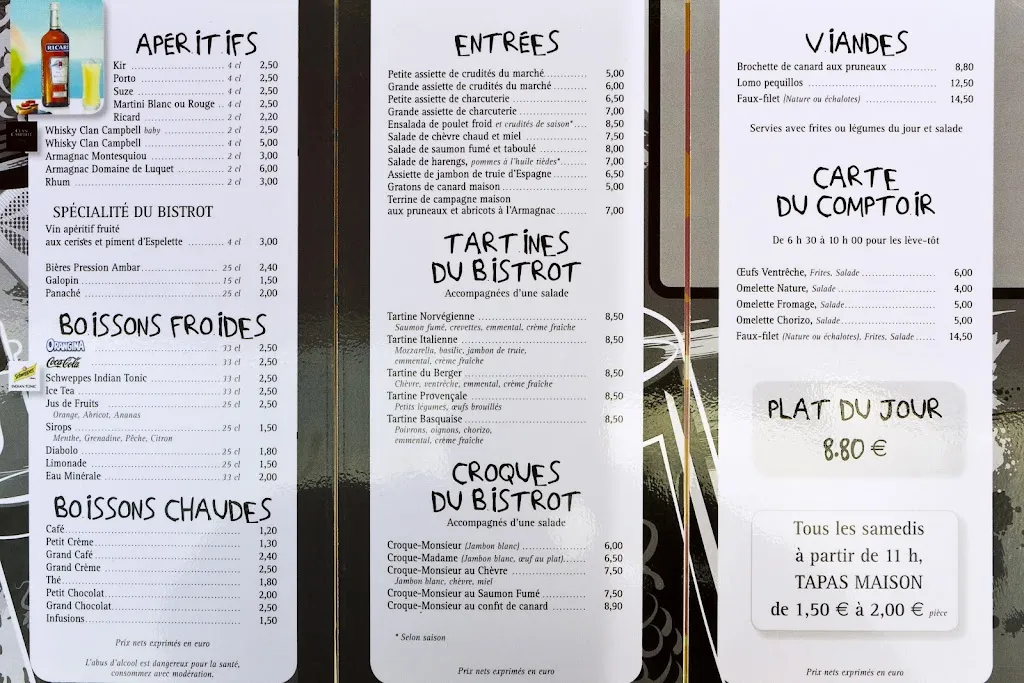 RICARD
APÉRITIFS
Kir 4 cl 2,50
Porto 4 cl 2,50
Suze 4 cl 2,50
Martini Blanc ou Rouge 4 cl 2,50
Ricard 2 cl 2,20
Whisky Clan Campbell baby 2 cl 2,50
Whisky Clan Campbell 4 cl 5,00
Armagnac Montesquiou 2 cl 3,00
Armagnac Domaine de Luquet 2 cl 6,00
Rhum 2 cl 3,00
SPÉCIALITÉ DU BISTROT
Vin apéritif fruité
aux cerises et piment d'Espelette 4 cl 3,00
Bières Pression Ambar 25 cl 2,40
Galopin 15 cl 1,50
Panaché 25 cl 2,00
BOISSONS FROIDES
ORANGINA 33 cl 2,50
Coca-Cola 33 cl 2,50
Schweppes Indian Tonic 33 cl 2,50
INDIAN TONIC
Ice Tea 33 cl 2,50
Jus de Fruits 25 cl 2,50
Orange, Abricot, Ananas
Sirops 25 cl 1,50
Menthe, Grenadine, Pêche, Citron
Diabolo 25 cl 1,80
Limonade 25 cl 1,50
Eau Minérale 33 cl 2,00
BOISSONS CHAUDES
Café 1,20
Petit Crème 1,30
Grand Café 2,40
Grand Crème 2,50
Thé 1,80
Petit Chocolat 2,00
Grand Chocolat 2,50
Infusions 1,50
Prix nets exprimés en euro
L'abus d'alcool est dangereux pour la santé,
consommez avec modération.
ENTRÉES
Petite assiette de crudités du marché 5,00
Grande assiette de crudités du marché 6,00
Petite assiette de charcuterie 6,50
Grande assiette de charcuterie 7,00
Ensalada de poulet froid et crudités de saison* 8,50
Salade de chèvre chaud et miel 7,50
Salade de saumon fumé et taboulé 8,00
Salade de harengs, pommes à l'huile tièdes* 7,00
Assiette de jambon de truie d'Espagne 6,50
Gratons de canard maison 5,00
Terrine de campagne maison
aux pruneaux et abricots à l'Armagnac 7,00
TARTINES
DU BISTROT
Accompagnées d'une salade
Tartine Norvégienne 8,50
Saumon fumé, crevettes, emmental, crème fraîche
Tartine Italienne 8,50
Mozzarella, basilic, jambon de truie,
emmental, crème fraîche
Tartine du Berger 8,50
Chèvre, ventrêche, emmental, crème fraîche
Tartine Provençale 8,50
Petits légumes, œufs brouillés
Tartine Basquaise 8,50
Poivrons, oignons, chorizo,
emmental, crème fraîche
CROQUES
DU BISTROT
Accompagnés d'une salade
Croque-Monsieur (Jambon blanc) 6,00
Croque-Madame (Jambon blanc, œuf au plat) 6,50
Croque-Monsieur au Chèvre 7,50
Jambon blanc, chèvre, miel
Croque-Monsieur au Saumon Fumé 7,50
Croque-Monsieur au confit de canard 8,90
* Selon saison
Prix nets exprimés en euro
VIANDES
Brochette de canard aux pruneaux 8,80
Lomo pequillos 12,50
Faux-filet (Nature ou échalotes) 14,50
Servies avec frites ou légumes du jour et salade
CARTE
DU COMPTOIR
De 6 h 30 à 10 h 00 pour les lève-tôt
Œufs Ventrêche, Frites, Salade 6,00
Omelette Nature, Salade 4,00
Omelette Fromage, Salade 5,00
Omelette Chorizo, Salade 5,00
Faux-filet (Nature ou échalotes), Frites, Salade 14,50
PLAT DU JOUR
8.80 €
Tous les samedis
à partir de 11 h,
TAPAS MAISON
de 1,50 € à 2,00 € pièce
Prix nets exprimés en euro